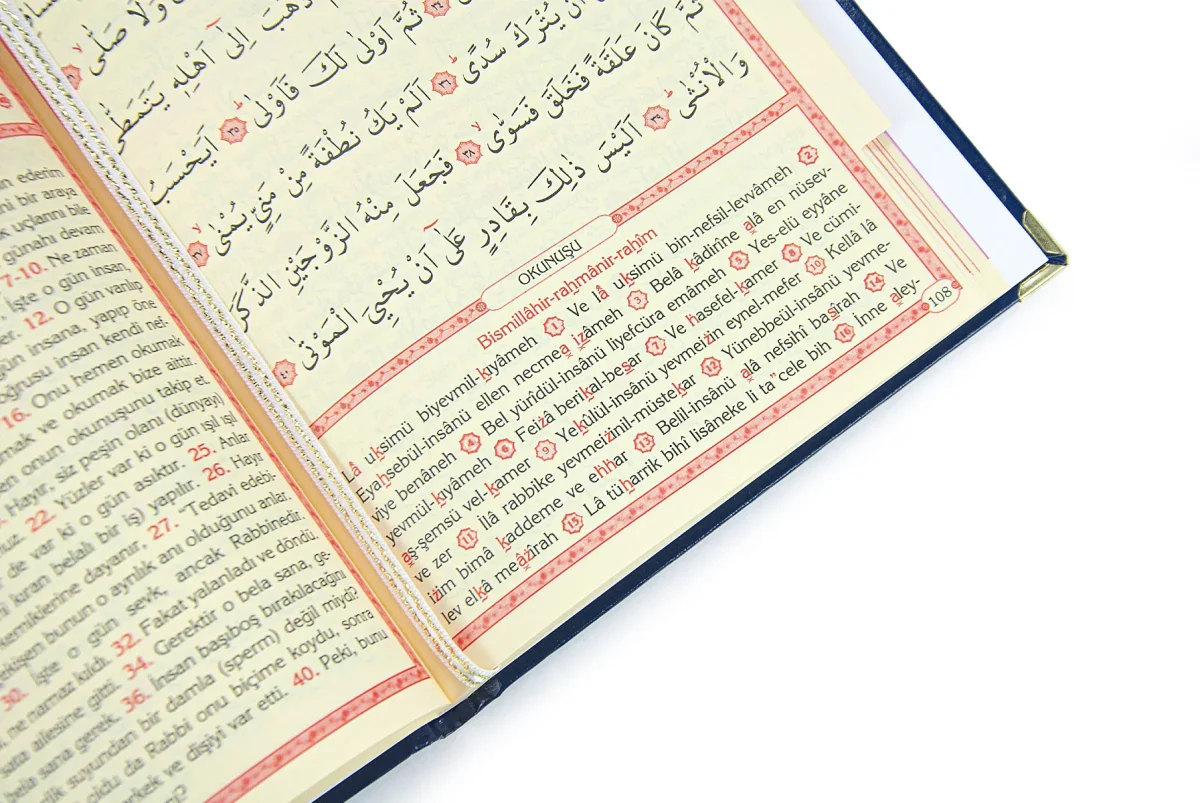 ذَهَبَ اِلٰٓى اَهْلِهٖ يَتَمَطّٰى
وَلَا صَلّٰى ﴿٣١﴾
ثُمَّ اَوْلٰى لَكَ فَاَوْلٰىؕ ﴿٣٥﴾ اَيَحْسَبُ
اَنْ يُتْرَكَ سُدًىؕ ﴿٣٦﴾ اَلَمْ يَكُ نُطْفَةً مِنْ مَنِيٍّ يُمْنٰىۙ ﴿٣٧﴾
ثُمَّ كَانَ عَلَقَةً فَخَلَقَ فَسَوّٰىۙ ﴿٣٨﴾ فَجَعَلَ مِنْهُ الزَّوْجَيْنِ الذَّكَرَ
وَالْاُنْثٰىؕ ﴿٣٩﴾ اَلَيْسَ ذٰلِكَ بِقَادِرٍ عَلٰٓى اَنْ يُحْيِيَ الْمَوْتٰى ﴿٤٠﴾
OKUNUŞU
Bismillâhir-rahmânir-rahîm
Lâ uksimü biyevmil-kıyâmeh 1 Ve lâ uksimü bin-nefsil-levvâmeh 2
Eyahsebül-insânü ellen necmea ızâmeh 3 Belâ kâdirîne alâ en nüsev-
viye benâneh 4 Bel yürîdül-insânü liyefcüra emâmeh 5 Yes-elü eyyâne
yevmül-kıyâmeh 6 Feizâ berikal-besar 7 Ve hasefel-kamer 8 Ve cümi-
aş-şemsü vel-kamer 9 Yekûlül-insânü yevmeizin eynel-mefer 10 Kellâ lâ
ve zer 11 İlâ rabbike yevmeizinil-müstekar 12 Yünebbeül-insânü yevme-
izim bimâ kaddeme ve ehhar 13 Belil-insânü alâ nefsihî basîrah 14 Ve
lev elkâ meâzîrah 15 Lâ tüharrik bihî lisâneke li ta"cele bih 16 İnne aley-
108
ederim
bir araya
uçlarını bile
günahı devam
7-10. Ne zaman
İşte o gün insan,
12. O gün varılıp
gün insana, yapıp öne
doğrusu insan kendi nef-
16. Onu hemen okumak
ve okumak bize aittir.
onun okunuşunu takip et.
Hayır, siz peşin olanı (dünyayı)
22. Yüzler var ki o gün ışıl ışıl
de var ki o gün asıktır. 25. Anlar
kıran belalı bir iş) yapılır. 26. Hayır
kemiklerine dayanır, 27. "Tedavi edebi-
bunun o ayrılık anı olduğunu anlar.
30. İşte o gün sevk, ancak Rabbinedir.
ne namaz kıldı. 32. Fakat yalanladı ve döndü.
ailesine gitti. 34. Gerektir o bela sana, ge-
bela sana gerek. 36. İnsan başıboş bırakılacağını
suyundan bir damla (sperm) değil miydi?
oldu da Rabbi onu biçime koydu, sonra
erkek ve dişiyi var etti. 40. Peki, bunu